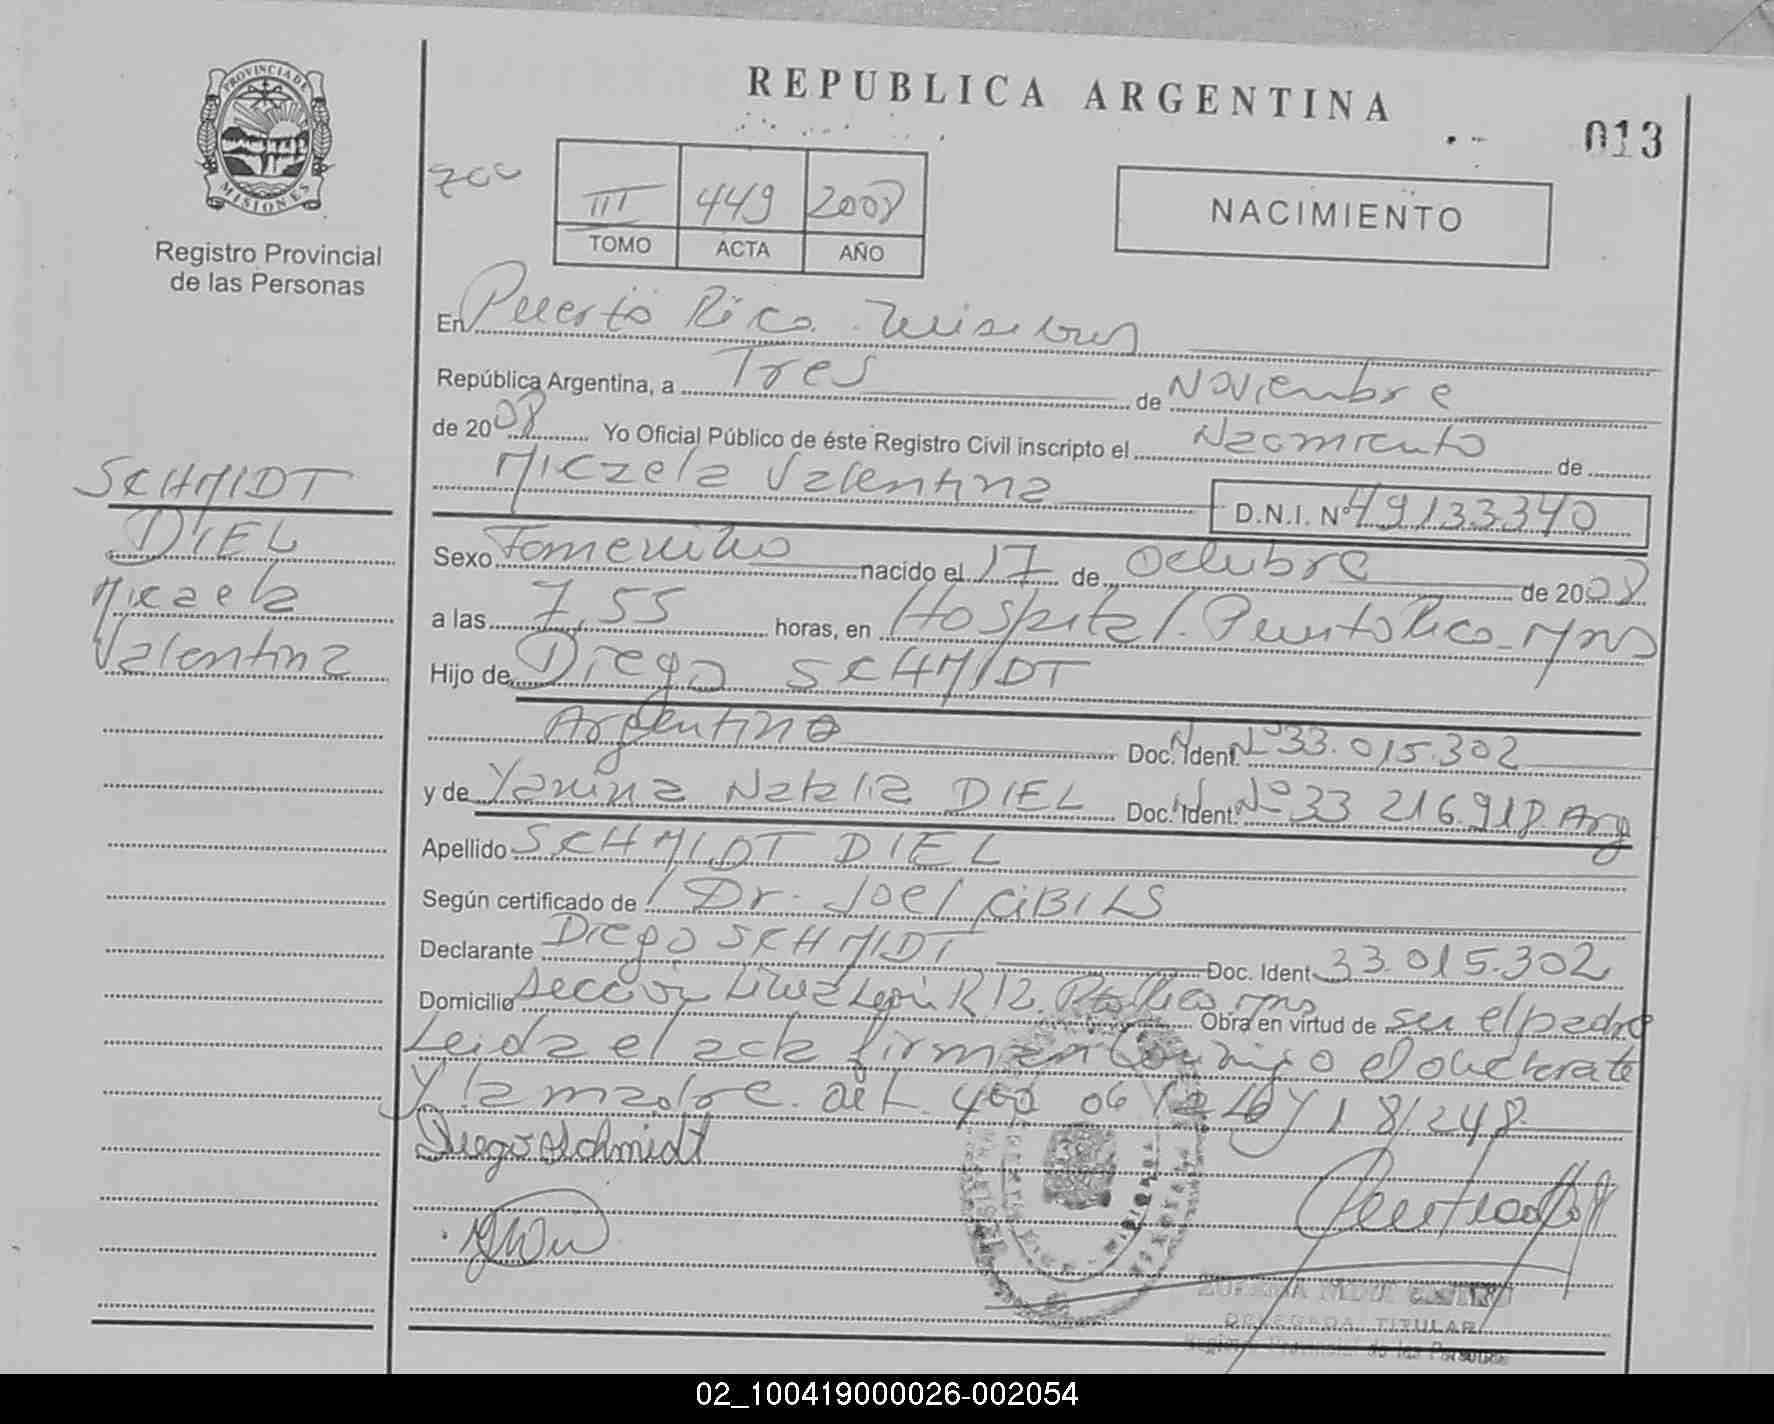 REPUBLICA ARGENTINA
013
PROVINCIA DE
MISIONES
Registro Provincial
de las Personas
III 449 2008
TOMO ACTA AÑO
NACIMIENTO
En Puerto Rico. Misiones
República Argentina, a Tres de Noviembre
de 2008 Yo Oficial Público de éste Registro Civil inscripto el Nacimiento de
Micaela Valentina D.N.I. Nº 49133340
SCHMIDT
DIEL
Micaela
Valentina
Sexo Femenino nacido el 17 de Octubre de 2008
a las 7,55 horas, en Hospital. Puerto Rico - Mns
Hijo de Diego SCHMIDT
Argentino Doc. Ident. Nº 33.015.302
y de Yanina Natalia DIEL Doc. Ident. Nº 33 216.918 Arg
Apellido SCHMIDT DIEL
Según certificado de Dr. Joel CIBILS
Declarante Diego SCHMIDT Doc. Ident 33.015.302
Domicilio Sección R 12. Pto Rico Mns Obra en virtud de ser el padre
Leida el acta firman conmigo el
y la madre. 18/248
Diego Schmidt
DELEGADA TITULAR
Registro Provincial de las Personas
02_100419000026-002054